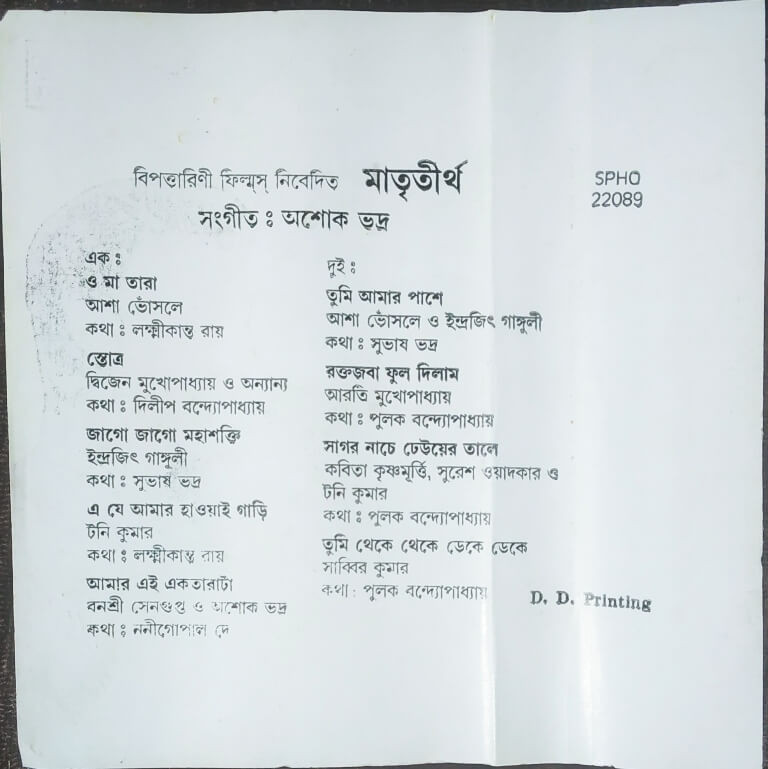 বিপত্তারিণী ফিল্মস্ নিবেদিত মাতৃতীর্থ
SPHO
22089
সংগীত : অশোক ভদ্র
এক :
ও মা তারা
আশা ভোঁসলে
কথা : লক্ষ্মীকান্ত রায়
স্তোত্র
দ্বিজেন মুখোপাধ্যায় ও অন্যান্য
কথা : দিলীপ বন্দ্যোপাধ্যায়
জাগো জাগো মহাশক্তি
ইন্দ্রজিৎ গাঙ্গুলী
কথা : সুভাষ ভদ্র
এ যে আমার হাওয়াই গাড়ি
টনি কুমার
কথা : লক্ষ্মীকান্ত রায়
আমার এই একতারাটা
বনশ্রী সেনগুপ্ত ও অশোক ভদ্র
কথা : ননীগোপাল দে
দুই :
তুমি আমার পাশে
আশা ভোঁসলে ও ইন্দ্রজিৎ গাঙ্গুলী
কথা : সুভাষ ভদ্র
রক্তজবা ফুল দিলাম
আরতি মুখোপাধ্যায়
কথা : পুলক বন্দ্যোপাধ্যায়
সাগর নাচে ঢেউয়ের তালে
কবিতা কৃষ্ণমূর্ত্তি, সুরেশ ওয়াদকার ও
টনি কুমার
কথা : পুলক বন্দ্যোপাধ্যায়
তুমি থেকে থেকে ডেকে ডেকে
সাব্বির কুমার
কথা : পুলক বন্দ্যোপাধ্যায়
D. D. Printing